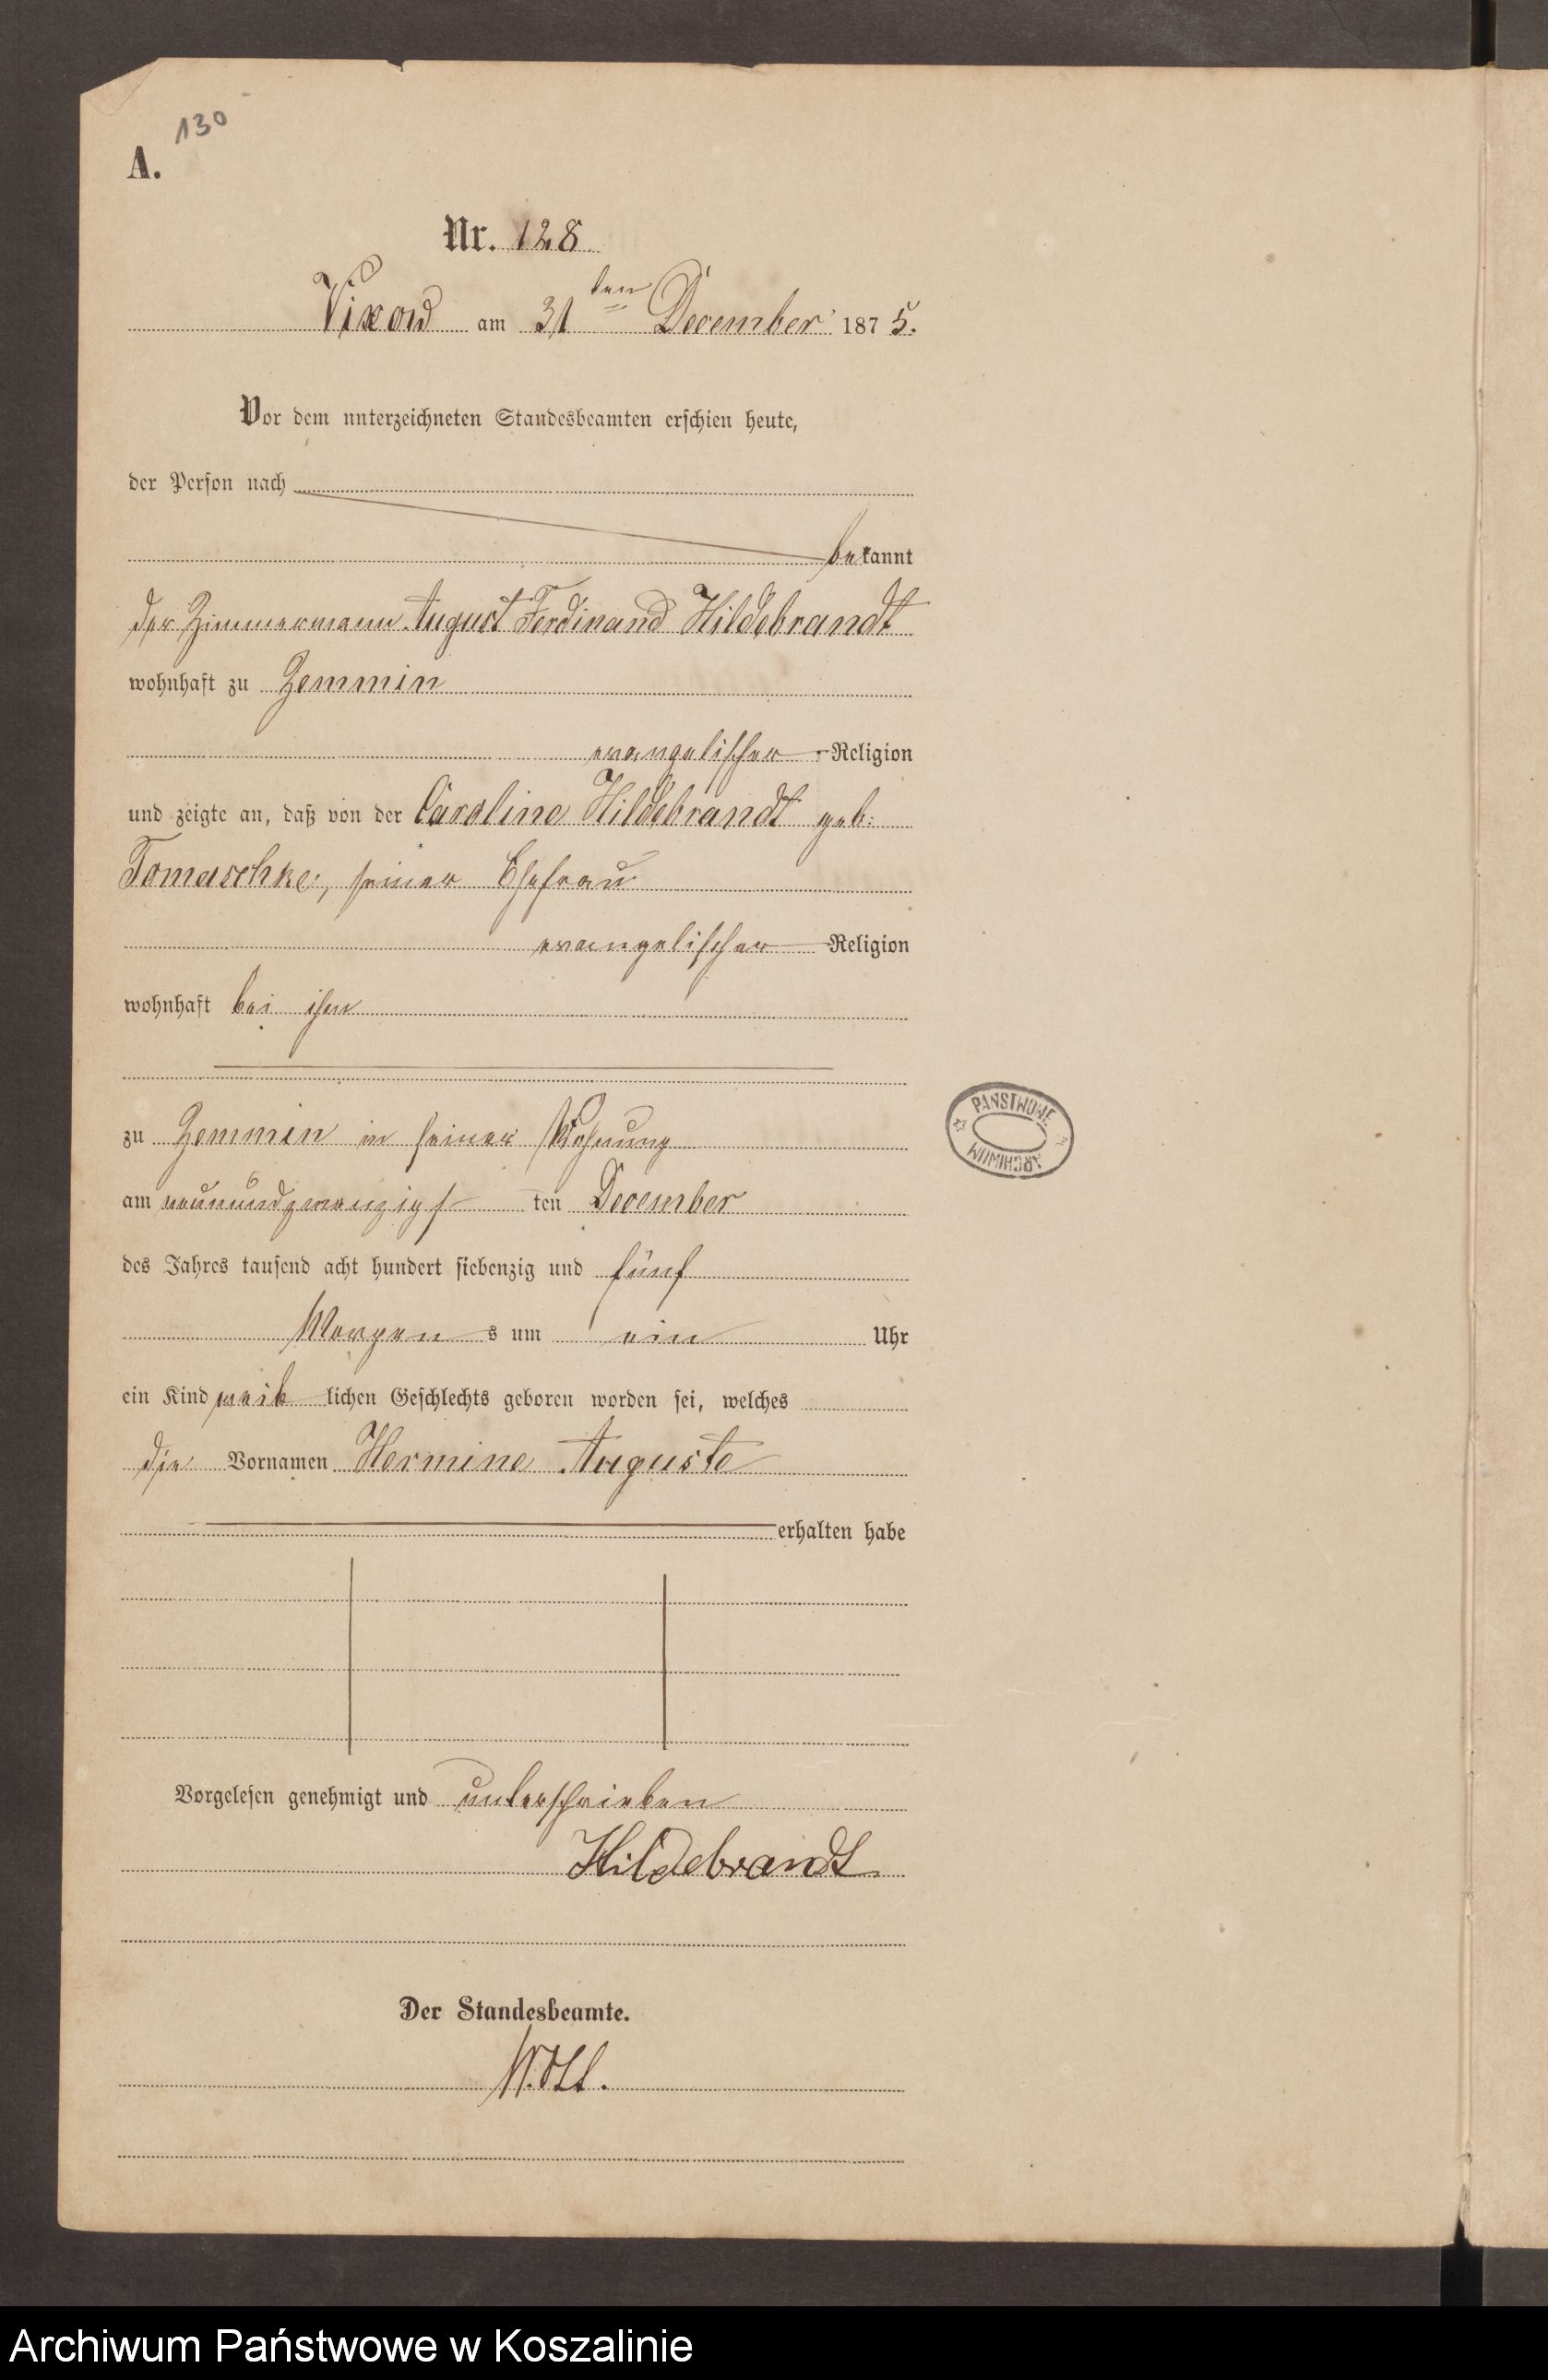 130
A.
Nr. 128
Vixow am 31ten December 1875.
Vor dem unterzeichneten Standesbeamten erschien heute,
der Person nach
bekannt
der Zimmermann August Ferdinand Hildebrandt
wohnhaft zu Zemmin
evangelischer Religion
und zeigte an, daß von der Caroline Hildebrandt geb:
Tomaschke, seiner Ehefrau
evangelischer Religion
wohnhaft bei ihm
zu Zemmin in seiner Wohnung
PAŃSTWOWE
ARCHIWUM
am neunundzwanzigsten December
des Jahres tausend acht hundert siebenzig und fünf
Morgens um ein Uhr
ein Kind weiblichen Geschlechts geboren worden sei, welches
die Vornamen Hermine Auguste
erhalten habe
Vorgelesen genehmigt und unterschrieben
Hildebrandt
Der Standesbeamte.
Archiwum Państwowe w Koszalinie